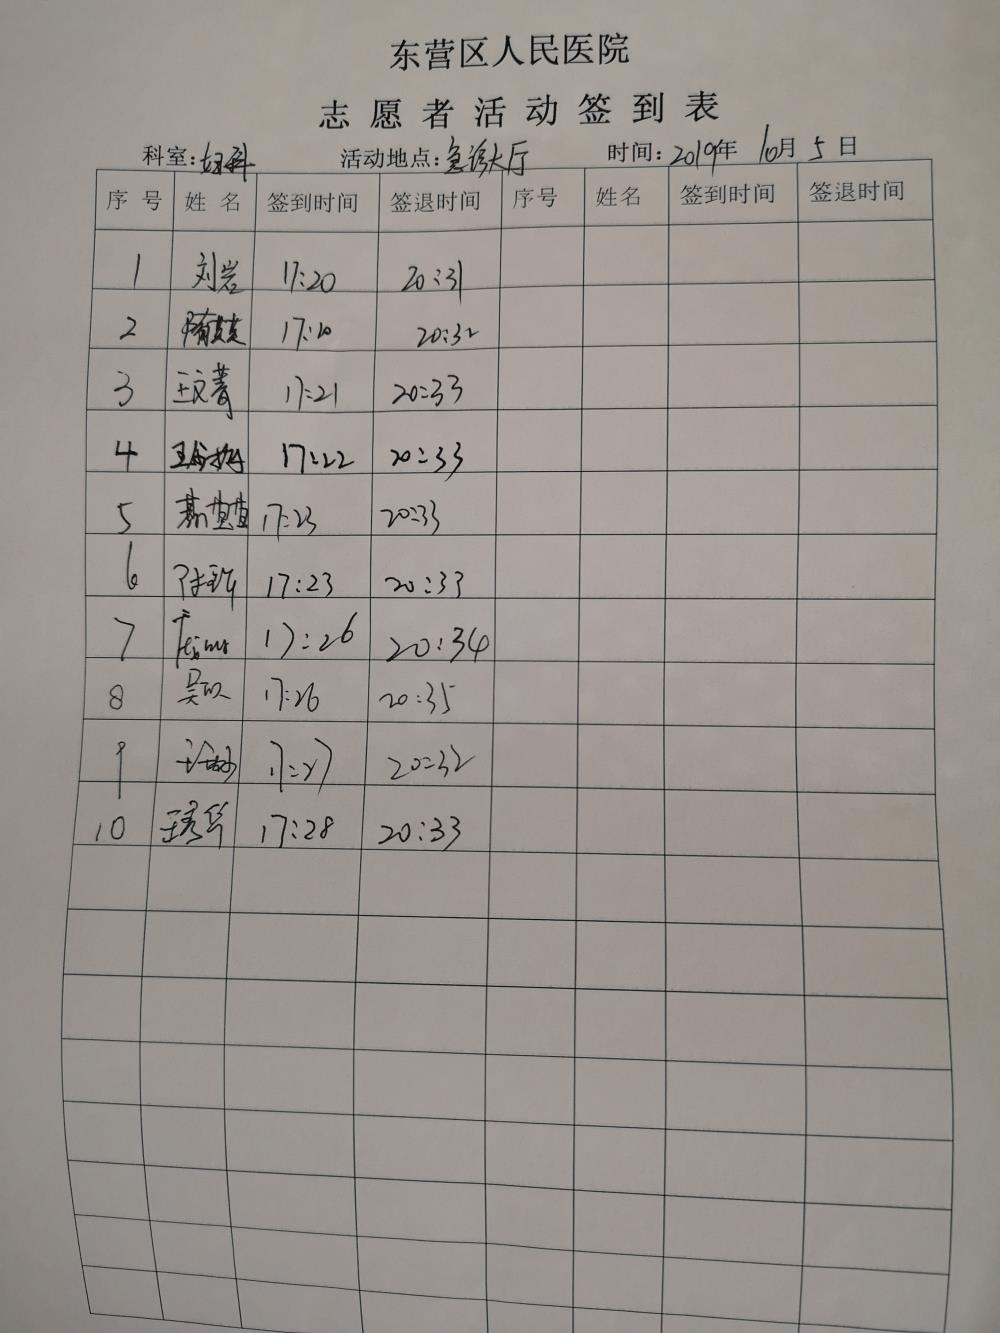 东营区人民医院
志愿者活动签到表
科室:妇科 活动地点:急诊大厅 时间:2019年 10月 5日
序号 姓名 签到时间 签退时间 序号 姓名 签到时间 签退时间
1 刘岩 17:20 20:31
2 17:20 20:32
3 王文菁 17:21 20:33
4 17:22 20:33
5 17:23 20:33
6 17:23 20:33
7 17:26 20:34
8 17:26 20:35
9 17:27 20:32
10 王秀华 17:28 20:33